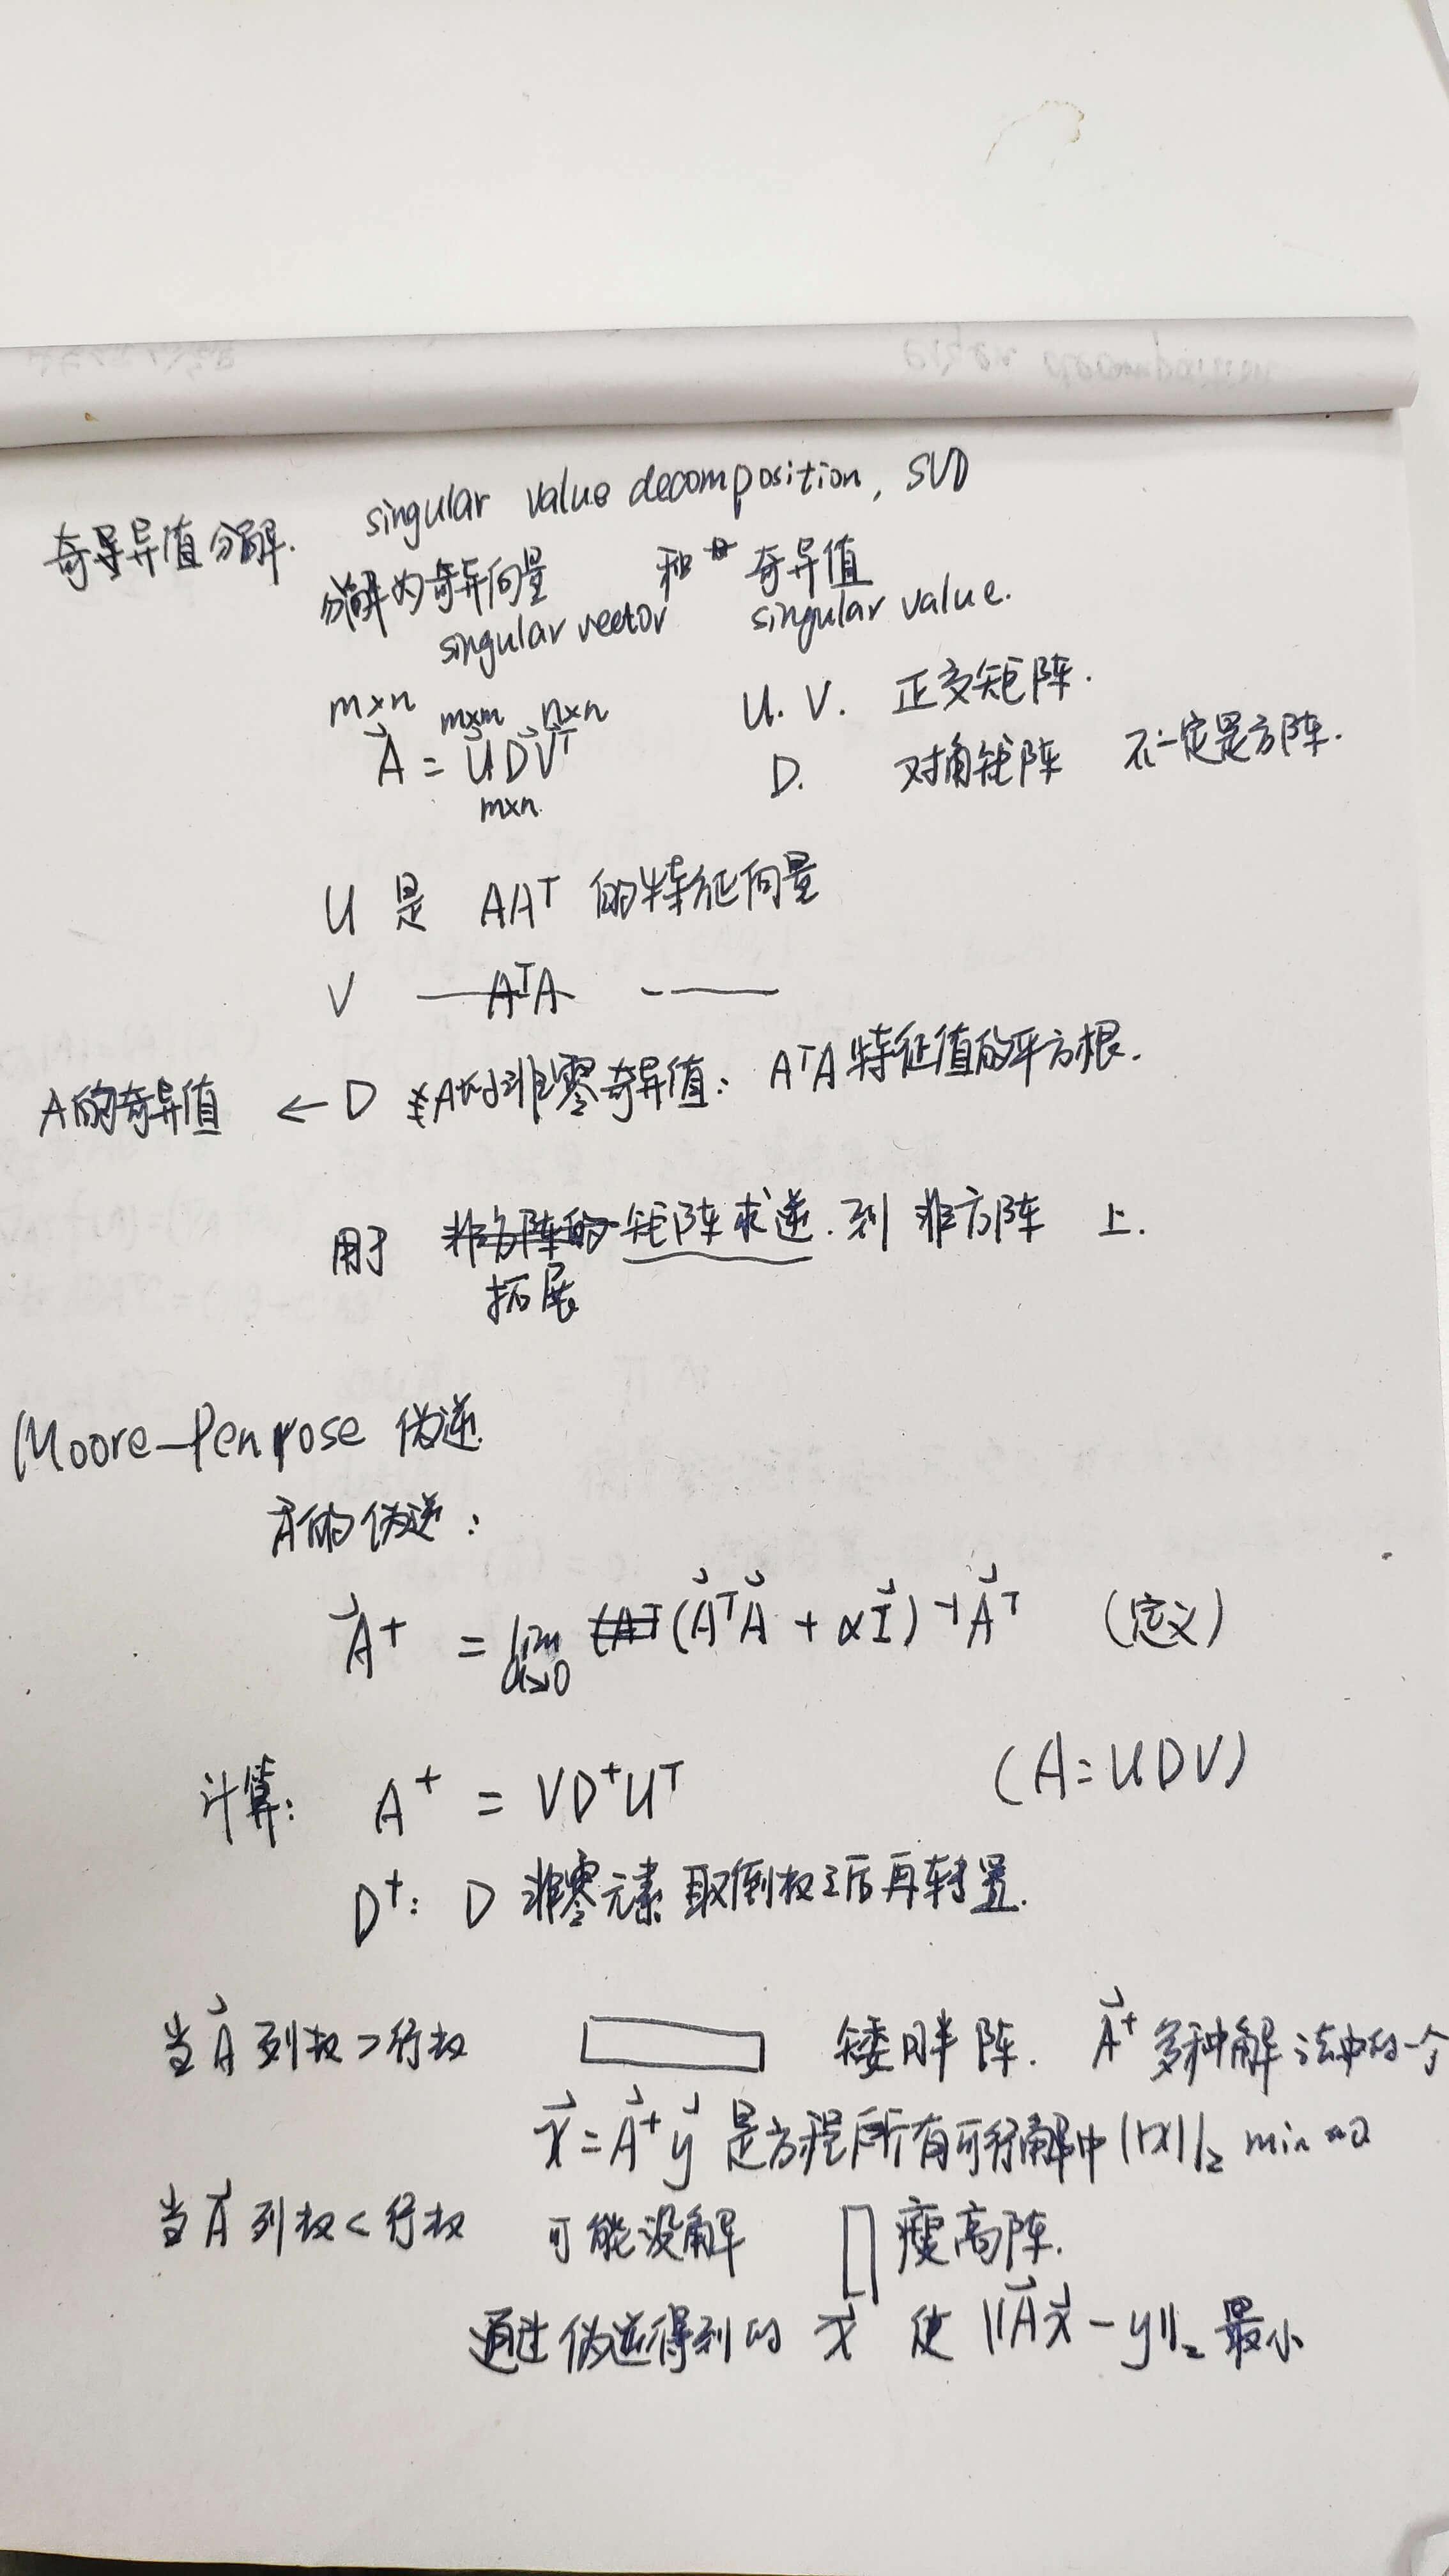 奇异值分解. singular value decomposition, SVD
分解为奇异向量 和 奇异值
singular vector singular value.
m×n m×m n×n U. V. 正交矩阵.
A⃗ = U⃗D⃗V⃗ᵀ D. 对角矩阵 不一定是方阵.
m×n
U 是 AAᵀ 的特征向量
V —— AᵀA ——
A的奇异值 ← D A的非零奇异值: AᵀA 特征值的平方根.
用于 非方阵的 矩阵求逆. 到 非方阵 上.
拓展
Moore-Penrose 伪逆
A⃗的伪逆:
A⃗⁺ = lim (A⃗ᵀA⃗ + αI⃗)⁻¹A⃗ᵀ (定义)
α↘0
计算: A⁺ = VD⁺Uᵀ (A=UDV)
D⁺: D 非零元素取倒数之后再转置.
当A⃗列数>行数 矮胖阵. A⃗⁺ 多种解法中的一个
x⃗=A⃗⁺y⃗ 是方程所有可行解中 ||x||₂ min
当A⃗列数<行数 可能没解 瘦高阵.
通过伪逆得到的 x⃗ 使 ||A⃗x⃗-y||₂ 最小